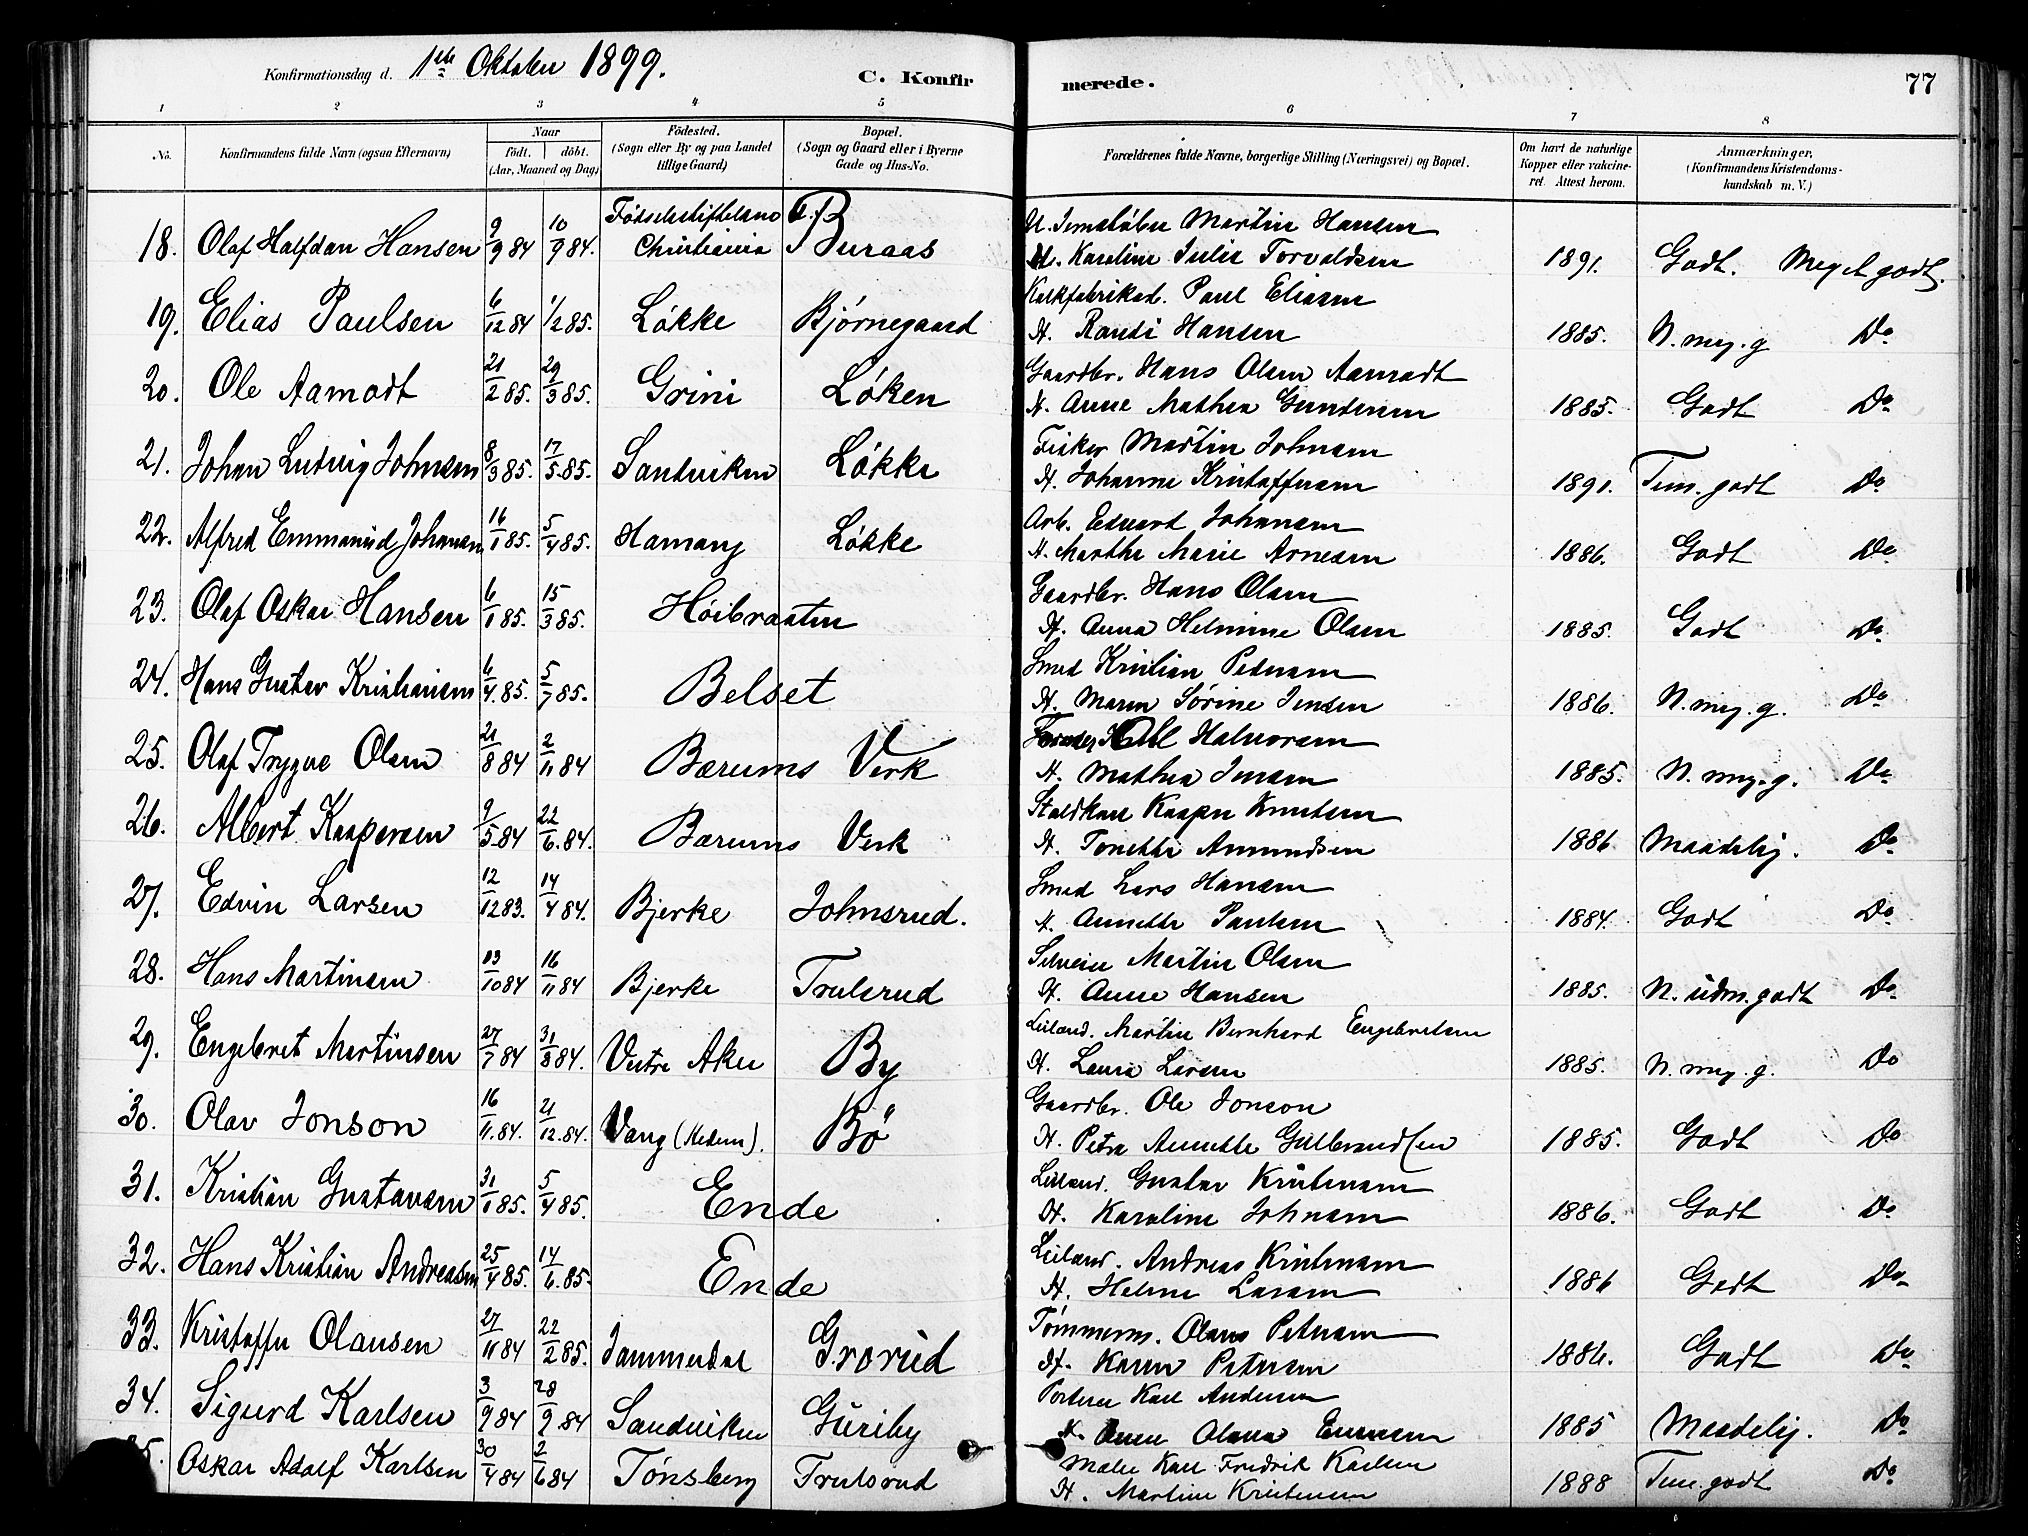 Konfirmationsdag d. 1ste Oktober 1899. C. Konfir merede. 77
1 2 3 4 5 6 7 8
No. Konfirmandens fulde Navn (ogsaa Efternavn) Naar födt. döbt. (Aar, Maaned og Dag) Födested. (Sogn eller By og paa Landet tillige Gaard) Bopæl. (Sogn og Gaard eller i Byerne Gade og Hus-No. Forældrenes fulde Navne, borgerlige Stilling (Næringsvei) og Bopæl. Om havt de naturlige Kopper eller vakcineret. Attest herom. Anmærkninger, (Konfirmandens Kristendomskundskab m. V.)
Fødselsstiftelsen U. Martin Hansen
18. Olaf Halfdan Hansen 9/9 84 10/9 84. Christiania Buraas U. Karoline Julie Torvaldsen 1891. Godt. Meget godt.
Kalkfabrikarb. Paul Eliasen
19. Elias Paulsen 6/12 84 1/2 85. Løkke Bjørnegaard H. Randi Hansen 1885. N. meg. g Do
Gaardbr. Hans Olsen Aamodt
20. Ole Aamodt 21/2 85. 29/3 85. Grini Løken H. Anne Mathea Gundersen 1885. Godt Do
Fisker Martin Johnsen
21. Johan Ludvig Johnsen 8/3 85. 17/5 85. Sandviken Løkke H. Johanne Kristoffersen 1891. Tem. godt Do
Arb. Edvard Johansen
22. Alfred Emmanuel Johansen 16/1 85. 5/4 85. Hamang Løkke H. Marthe Marie Arnesen 1886. Godt Do
Gaardbr. Hans Olsen
23. Olaf Oskar Hansen 6/1 85. 15/3 85. Høibraaten H. Anna Helmine Olsen 1885. Godt Do
Smed Kristian Pedersen
24. Hans Gustav Kristiansen 6/4. 85. 5/7 85. Belset H. Maren Sørine Jensen 1886. N. meg. g. Do
Halvorsen
25. Olaf Trygve Olsen 21/8 84 2/11 84 Bærums Verk H. Mathea Jensen 1885. N. meg. g. Do
Staldkarl Kasper Knutsen
26. Albert Kaspersen 9/5 84 22/6. 84. Bærums Verk H. Tonette Amundsen 1886 Maadelig. Do
Smed Lars Hansen
27. Edvin Larsen 12/12 83. 14/4 84. Bjerke Johnsrud. H. Annette Paulsen 1884. Godt Do
Selveier Martin Olsen
28. Hans Martinsen 13/10 84 16/11 84 Bjerke Trulsrud H. Anne Hansen 1885. N. udm. godt Do
Leilænd. Martin Bernhard Engebretsen
29. Engebret Martinsen 27/7 84 31/8 84. Vestre Aker By H. Laura Larsen 1885. N. meg. g. Do
Gaardbr. Ole Jonson
30. Olav Jonson 16/11. 84. 21/12. 84. Vang (Hedem). Bø H. Petra Annette Gulbrandsen 1885. Godt Do
Leilænd. Gustav Kristensen
31. Kristian Gustavsen 31/1 85. 5/4 85. Ende H. Karoline Johnsen 1886. Godt Do
Leilænd. Andreas Kristensen
32. Hans Kristian Andreasen 25/4 85. 14/6. 85. Ende H. Helene Larsen 1886 Godt Do
Tømmerm. Olaus Petersen
33. Kristoffer Olausen 27/11 84 22/2 85. Jammerdal Grorud H. Karen Petersen 1886. Godt Do
Portner Karl Andersen
34. Sigurd Karlsen 3/9 84 28/9 84 Sandviken Guriby H. Anne Olava 1885 Maadelig. Do
Maler Karl Fredrik Karlsen
35. Oskar Adolf Karlsen 30/4 84 2/6 84 Tønsberg Trulsrud H. Martine Kristensen 1888 Tem. godt Do